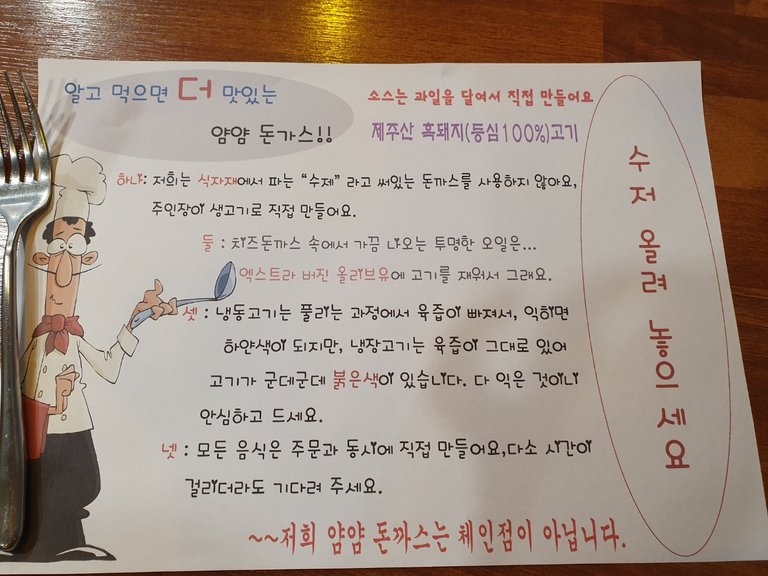 알고 먹으면 더 맛있는
얌얌 돈가스!!
소스는 과일을 달여서 직접 만들어요
제주산 흑돼지(등심100%)고기
하나: 저희는 식자재에서 파는 “수제” 라고 써있는 돈까스를 사용하지 않아요,
주인장이 생고기로 직접 만들어요.
둘 : 치즈돈까스 속에서 가끔 나오는 투명한 오일은...
엑스트라 버진 올리브유에 고기를 재워서 그래요.
셋 : 냉동고기는 풀리는 과정에서 육즙이 빠져서, 익히면
하얀색이 되지만, 냉장고기는 육즙이 그대로 있어
고기가 군데군데 붉은색이 있습니다. 다 익은 것이니
안심하고 드세요.
넷 : 모든 음식은 주문과 동시에 직접 만들어요,다소 시간이
걸리더라도 기다려 주세요.
~~저희 얌얌 돈까스는 체인점이 아닙니다.
수저 올려 놓으세요